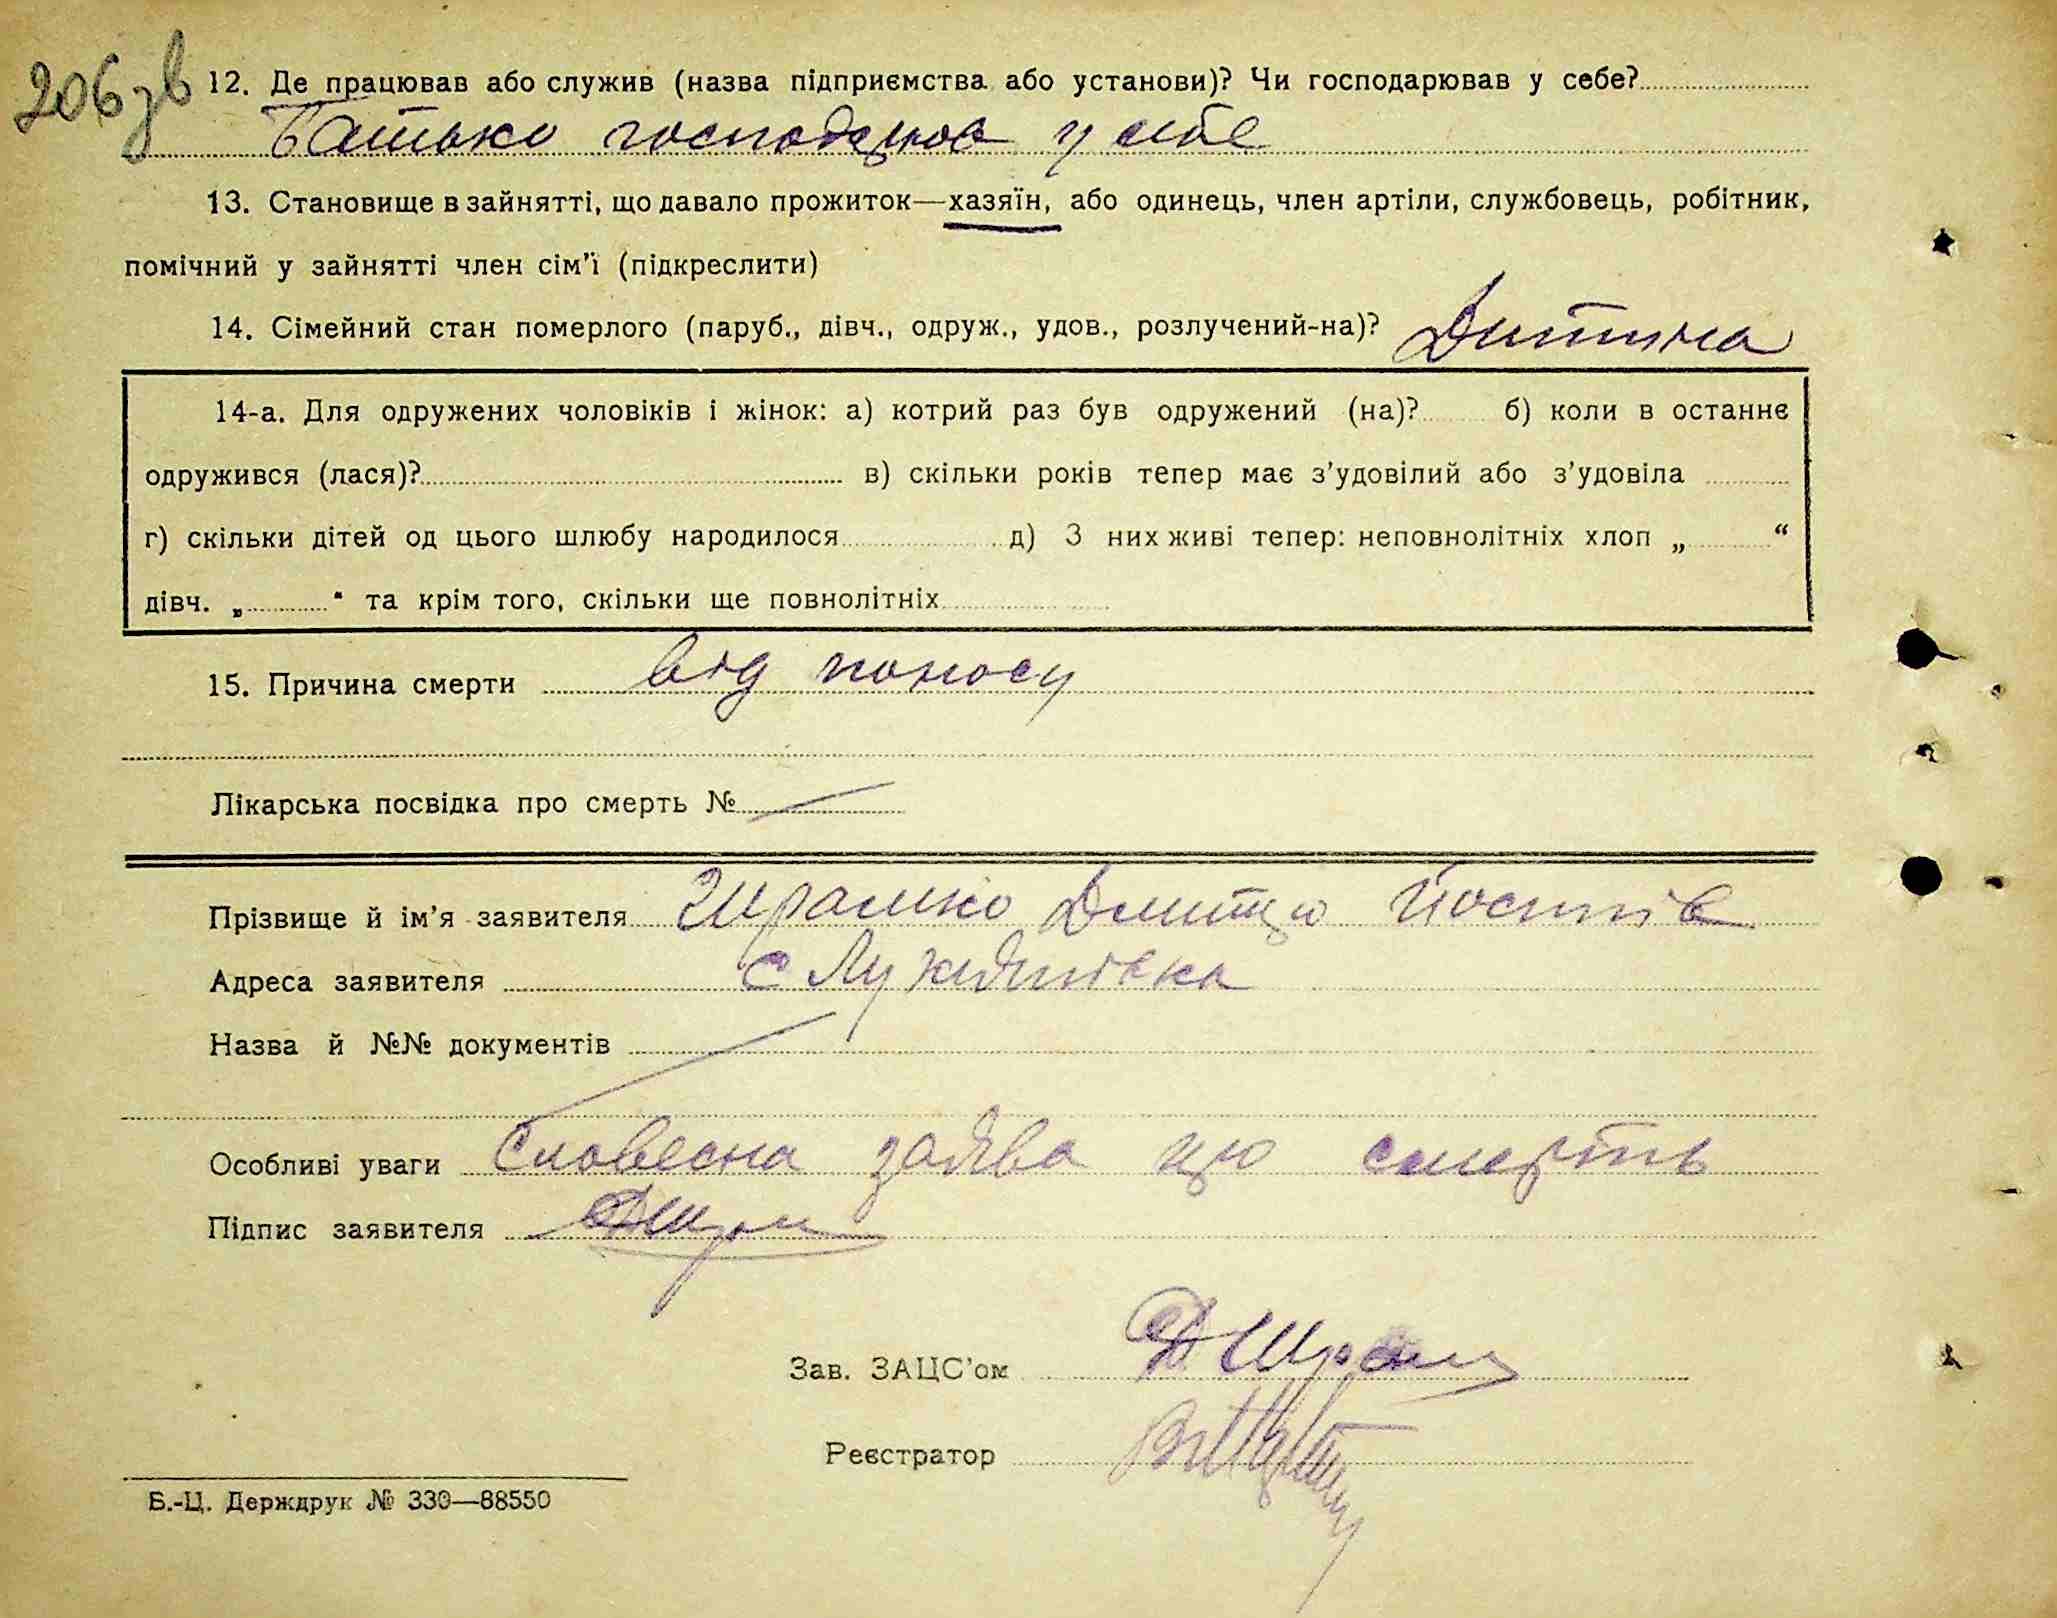 206 зв
12. Де працював або служив (назва підприємства або установи)? Чи господарював у себе?
Батько господарював у себе
13. Становище в зайнятті, що давало прожиток—хазяїн, або одинець, член артіли, службовець, робітник,
помічний у зайнятті член сім’ї (підкреслити)
14. Сімейний стан померлого (паруб., дівч., одруж., удов., розлучений-на)? Дитина
14-а. Для одружених чоловіків і жінок: а) котрий раз був одружений (на)? б) коли в останнє
одружився (лася)? в) скільки років тепер має з’удовілий або з’удовіла
г) скільки дітей од цього шлюбу народилося д) З них живі тепер: неповнолітніх хлоп „ “
дівч. „ “ та крім того, скільки ще повнолітніх
15. Причина смерти від поносу
Лікарська посвідка про смерть № —
Прізвище й ім’я заявителя Шрамко Дмитро Йосипів
Адреса заявителя с
Назва й №№ документів
Особливі уваги Словесна заява про смерть
Підпис заявителя ДШрам
Зав. ЗАЦС’ом ДШрам
Реєстратор
Б.-Ц. Держдрук № 330—88550